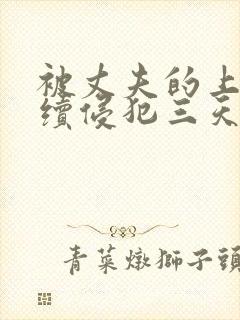 被丈夫的上
续侵犯三天
青菜燉獅子頭